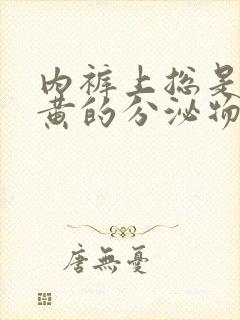 内裤上总是
黄的分泌物
唐無憂